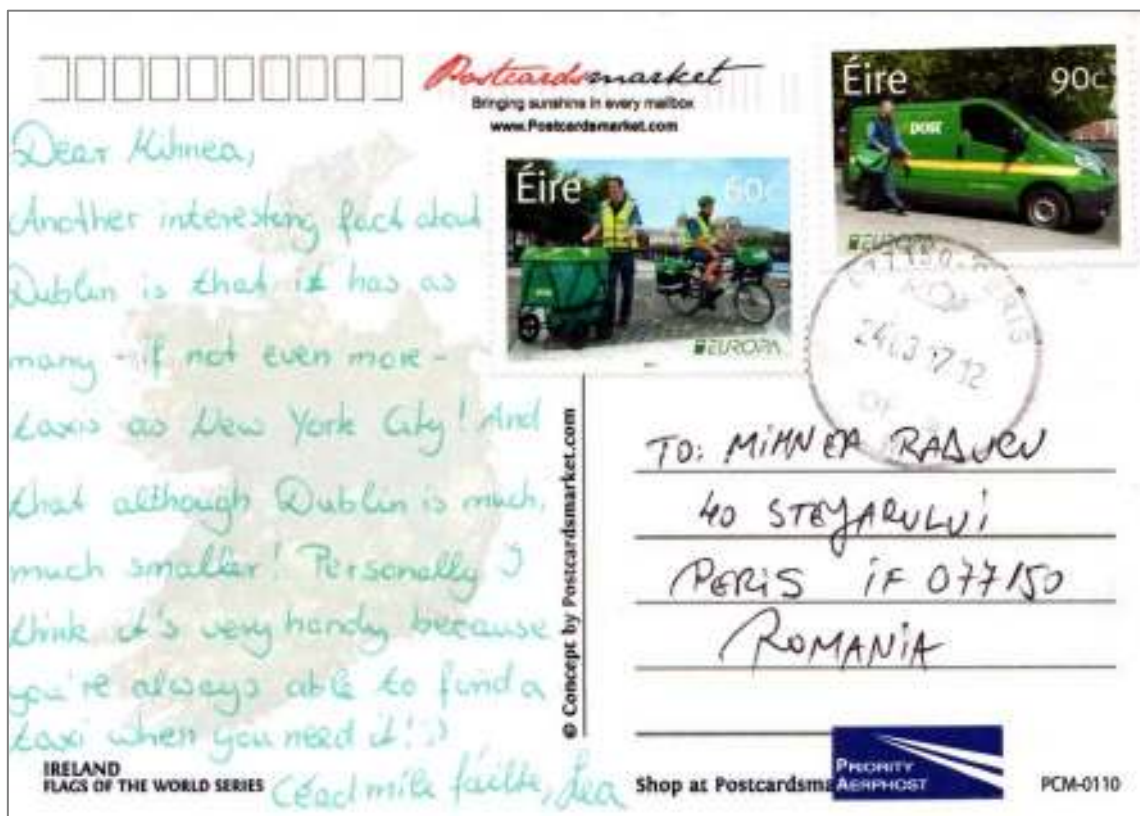 Postcardsmarket
Bringing sunshine in every mailbox
www.Postcardsmarket.com
Éire 90c
POST
EUROPA
Éire 60c
EUROPA
24 03 17 12
Dear Mihnea,
Another interesting fact about
Dublin is that it has as
many - if not even more -
taxis as New York City! And
that although Dublin is much,
much smaller! Personally I
think it's very handy because
you're always able to find a
taxi when you need it! :)
Céad míle fáilte, Lea
© Concept by Postcardsmarket.com
TO: MIHNEA RADUCU
40 STEJARULUI
PERIS IF 077150
ROMANIA
PRIORITY
AERPHOST
IRELAND
FLAGS OF THE WORLD SERIES
Shop at Postcardsma
PCM-0110